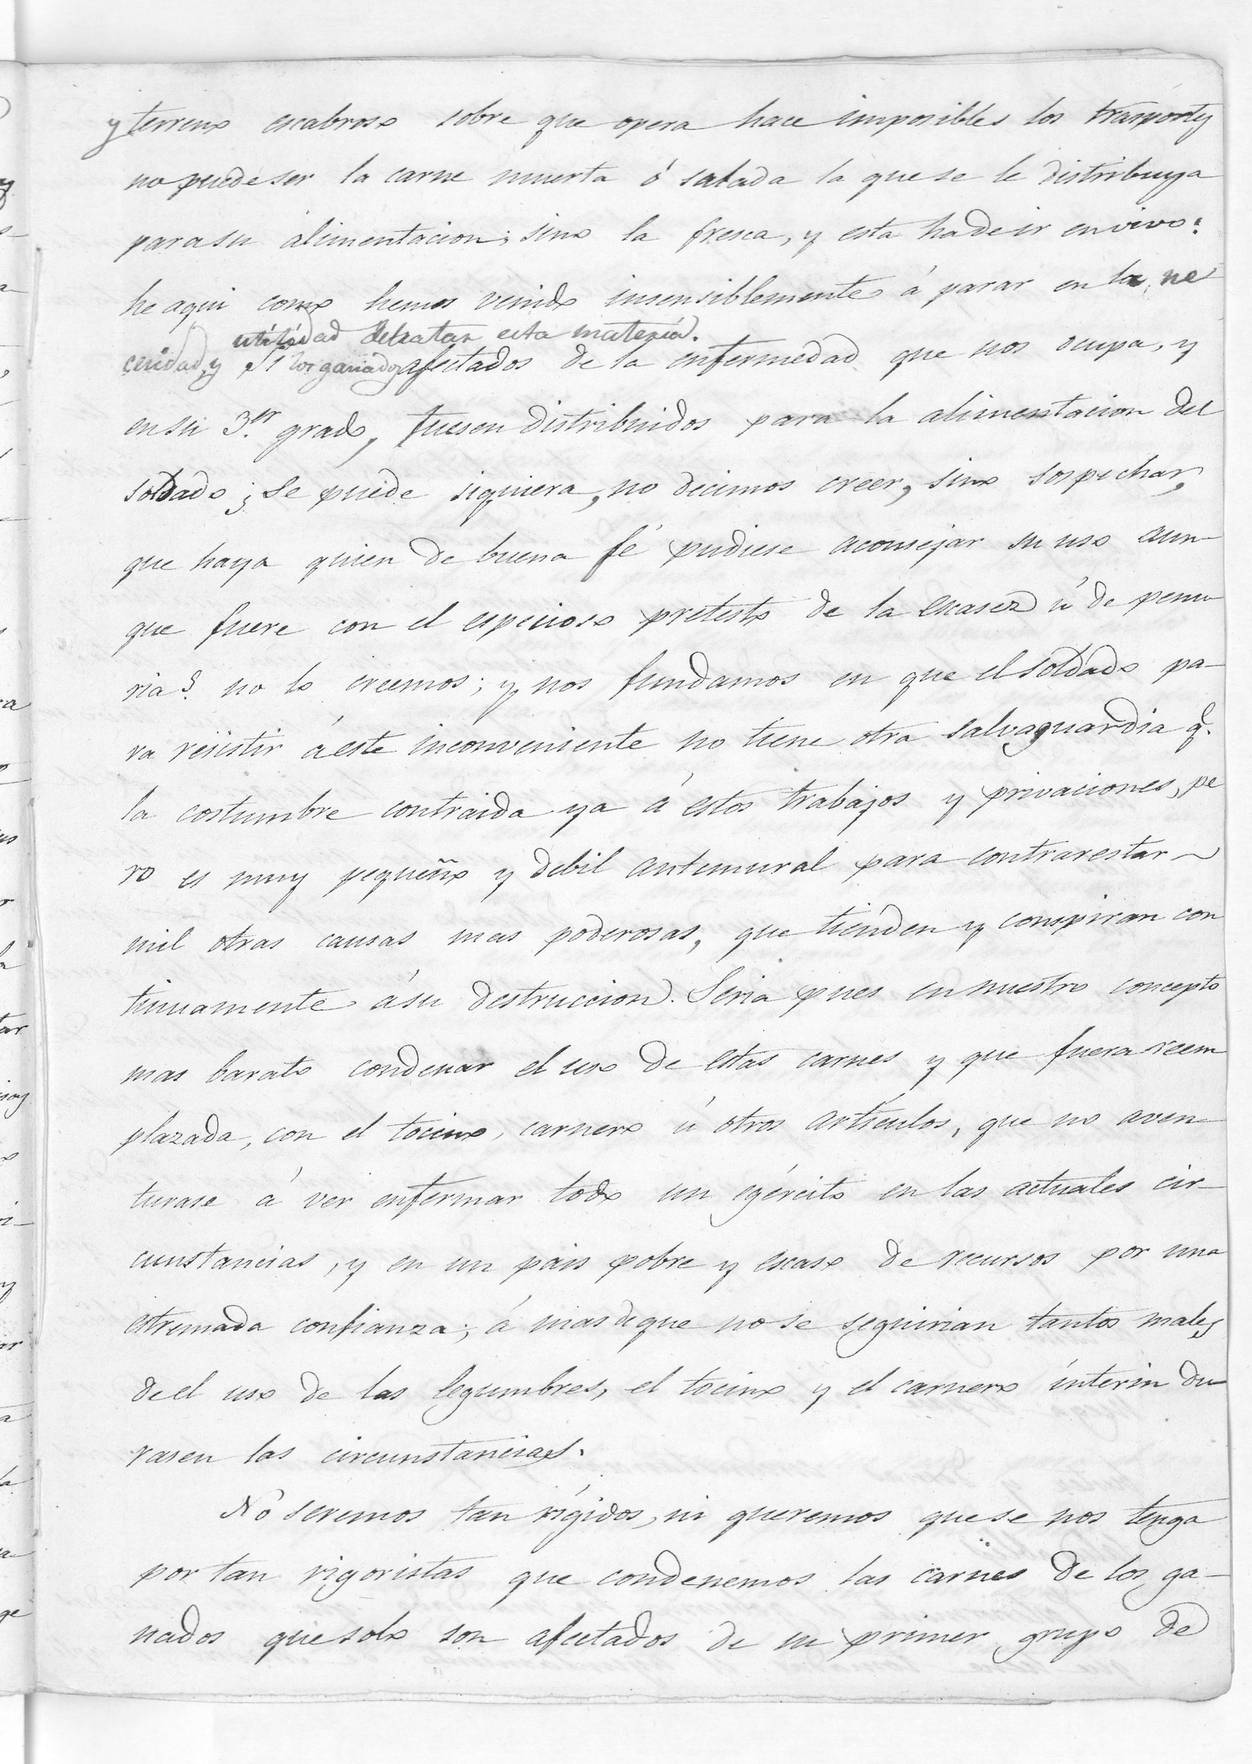 y terreno escabroso sobre que opera hace imposibles los trasportes
no puede ser la carne muerta ó salada la que se le distribuya
para su alimentacion; sino la fresca, y esta ha de ir en vivo:
he aqui como hemos venido insensiblemente á parar en la ne
utilidad detratar esta materia.
cesidad, y Si los ganados afectados de la enfermedad que nos ocupa, y
en su 3.er grado, fuesen distribuidos para la alimentacion del
soldado ¿Se puede siquiera, no decimos creer, sino sospechar,
que haya quien de buena fé pudiese aconsejar su uso aun-
que fuere con el especioso pretesto de la escasez ú de penu
ria? no lo creemos; y nos fundamos en que el soldado pa-
ra resistir á este inconveniente no tiene otra salvaguardia q.
la costumbre contraida ya á estos trabajos y privaciones, pe
ro es muy pequeño y debil antemural para contrarestar
mil otras causas mas poderosas, que tienden y conspiran con
tinuamente á su destruccion. Seria pues en nuestro concepto
mas barato condenar el uso de estas carnes y que fuera reem
plazada, con el tocino, carnero ú otros artículos, que no aven
turase á ver enfermar todo un egército en las actuales cir-
cunstancias, y en un pais pobre y escaso de recursos por una
estremada confianza; á mas de que no se seguirian tantos males
de el uso de las legumbres, el tocino y el carnero ínterin du
rasen las circunstancias.
No seremos tan rígidos, ni queremos que se nos tenga
por tan rigoristas que condenemos las carnes de los ga-
nados que solo son afectados de un primer grupo de